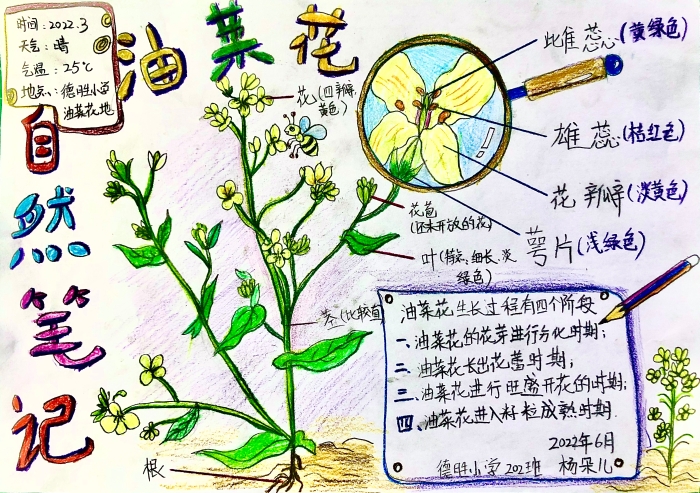 时间:2022.3
天气:晴
气温:25℃
地点:德胜小学
油菜花地
油菜花
自然笔记
花(四瓣,
黄色)
花苞
(还未开放的花)
叶(背尖,细长、淡
绿色)
茎(比较直)
根
雌蕊(黄绿色)
雄蕊(桔红色)
花瓣(淡黄色)
萼片(浅绿色)
油菜花生长过程有四个阶段
一、油菜花的花芽进行分化时期;
二、油菜花长出花蕾时期;
三、油菜花进行旺盛开花的时期;
四、油菜花进入籽粒成熟时期.
2022年6月
德胜小学202班 杨朵儿